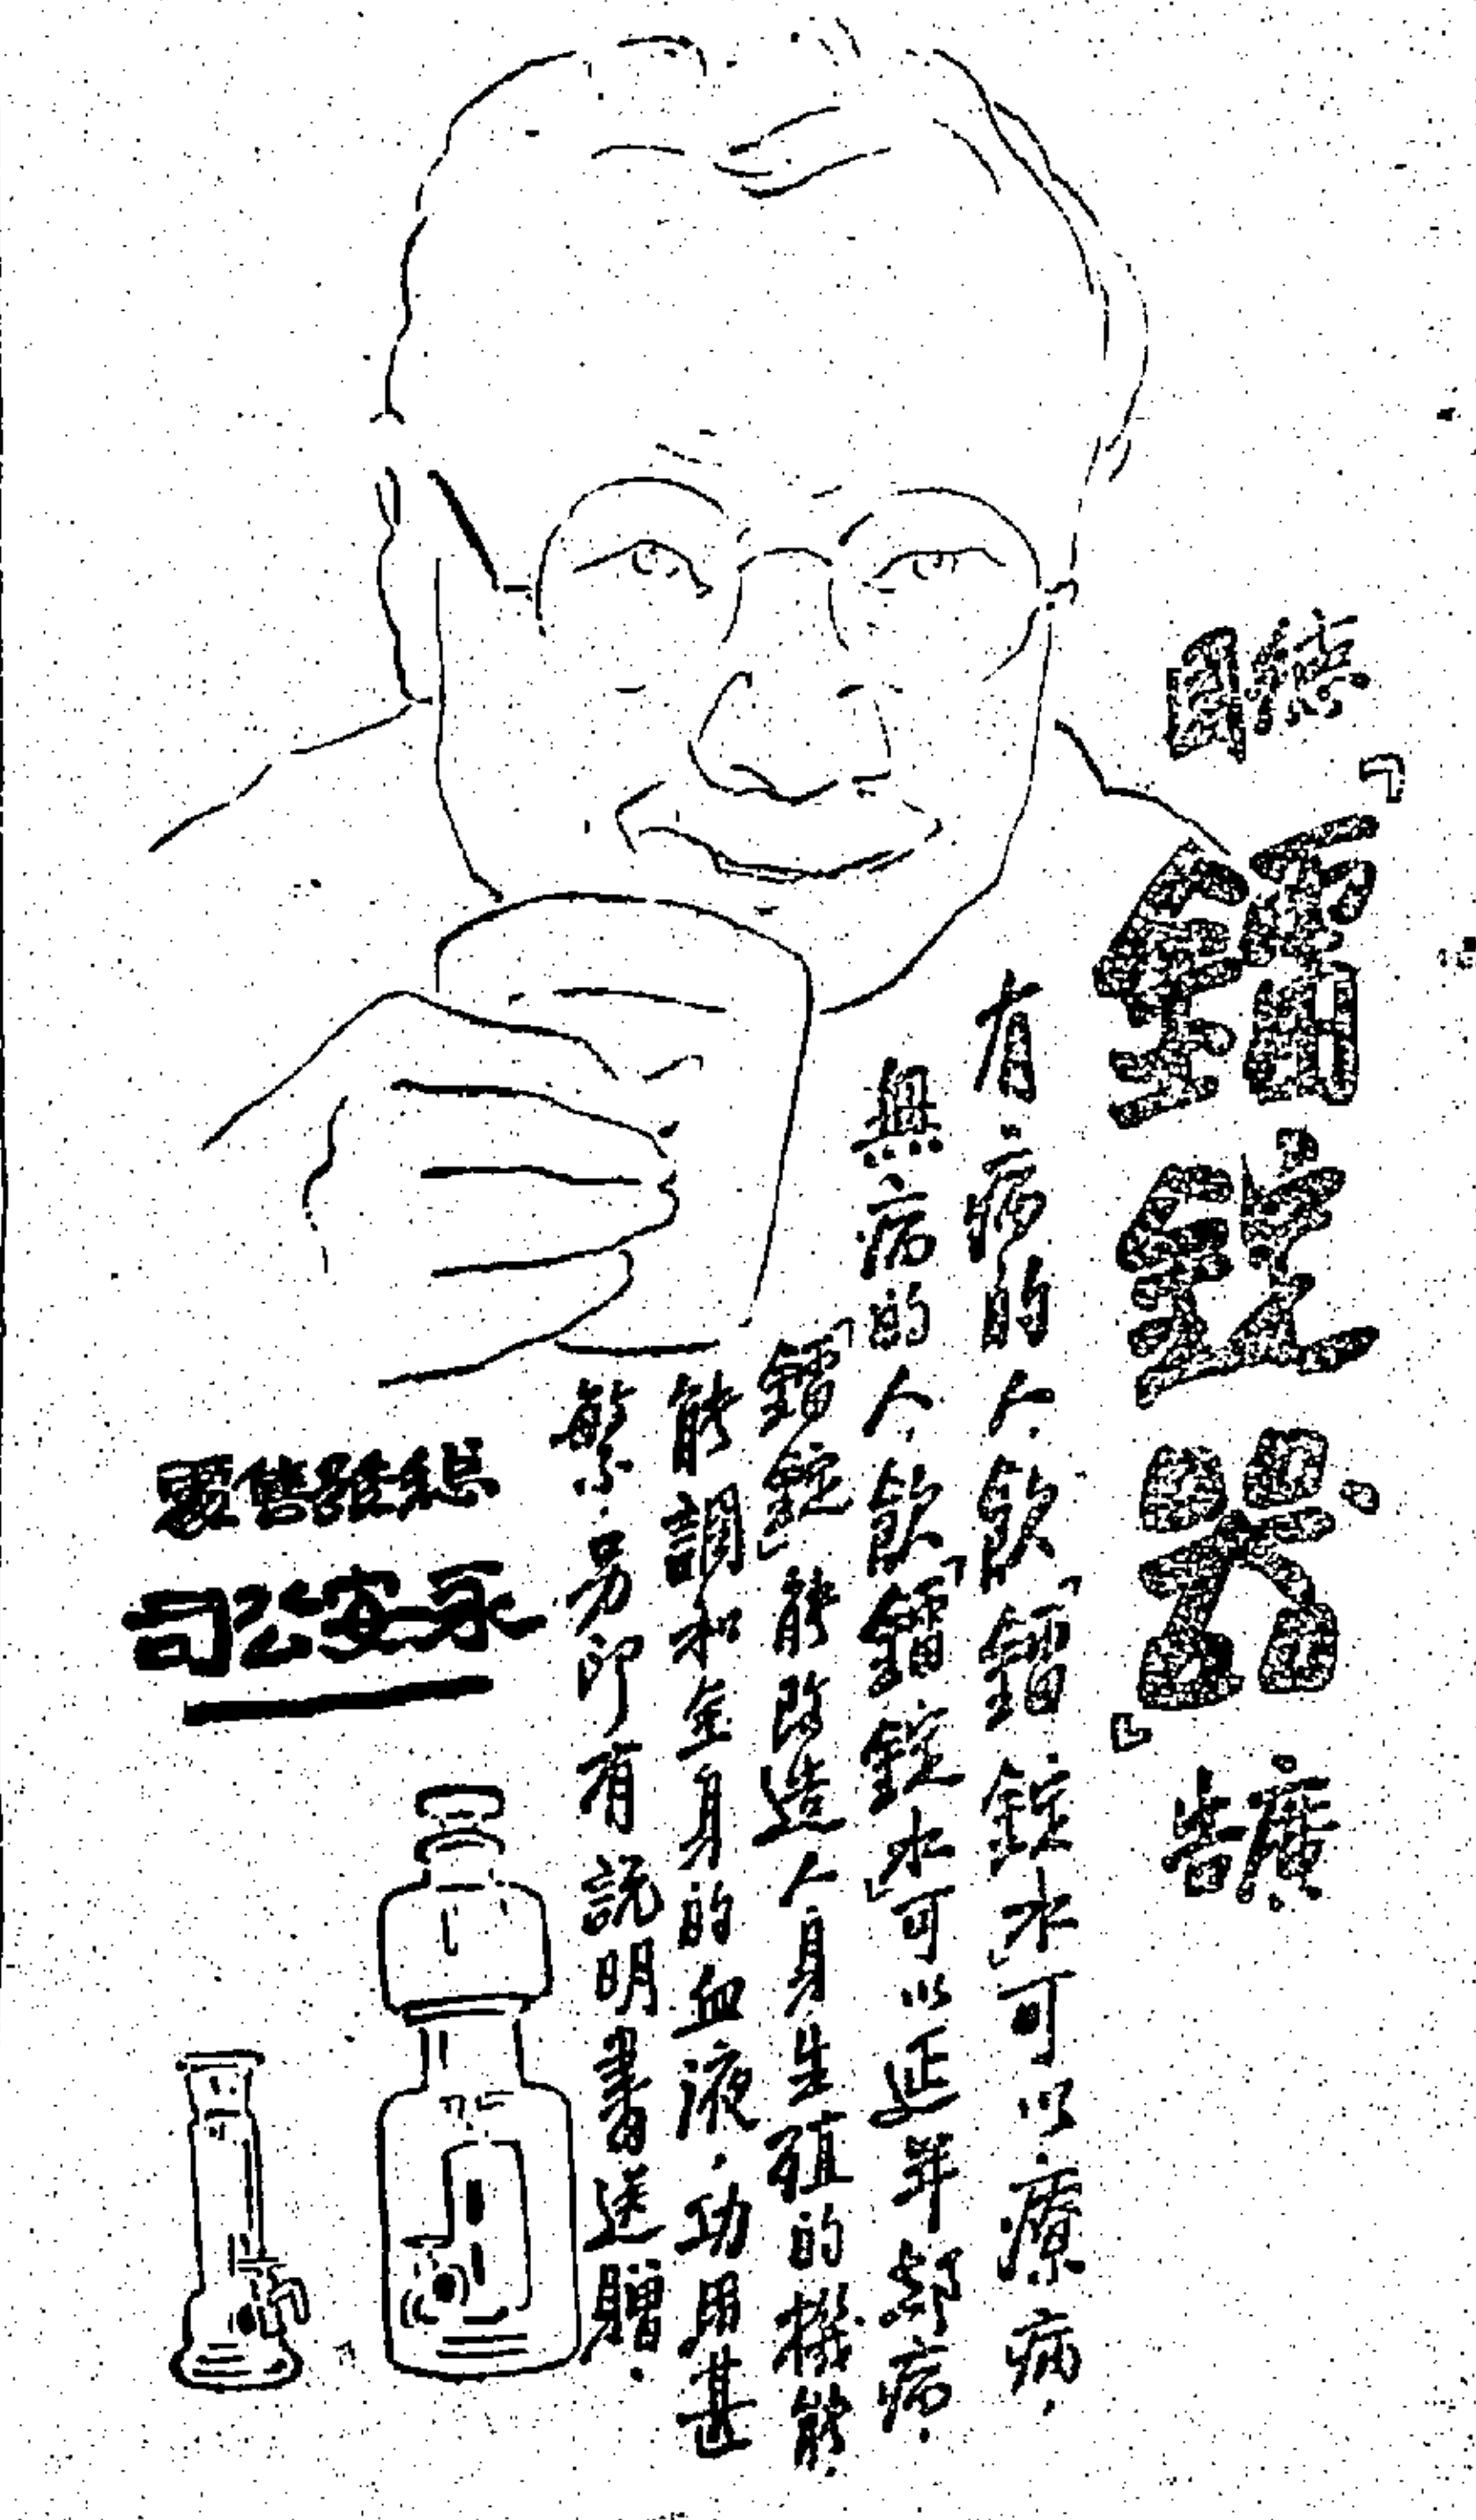 德國
「鐳錠器」
廣告
有病的人.飲「鐳錠水」可以療病.
無病的人.飲「鐳錠水」可以延年卻病.
「鐳錠」能改造人身生殖的機能.
能調和全身的血液.功用甚
繁.另印有説明書送贈.
總發售處
永安公司